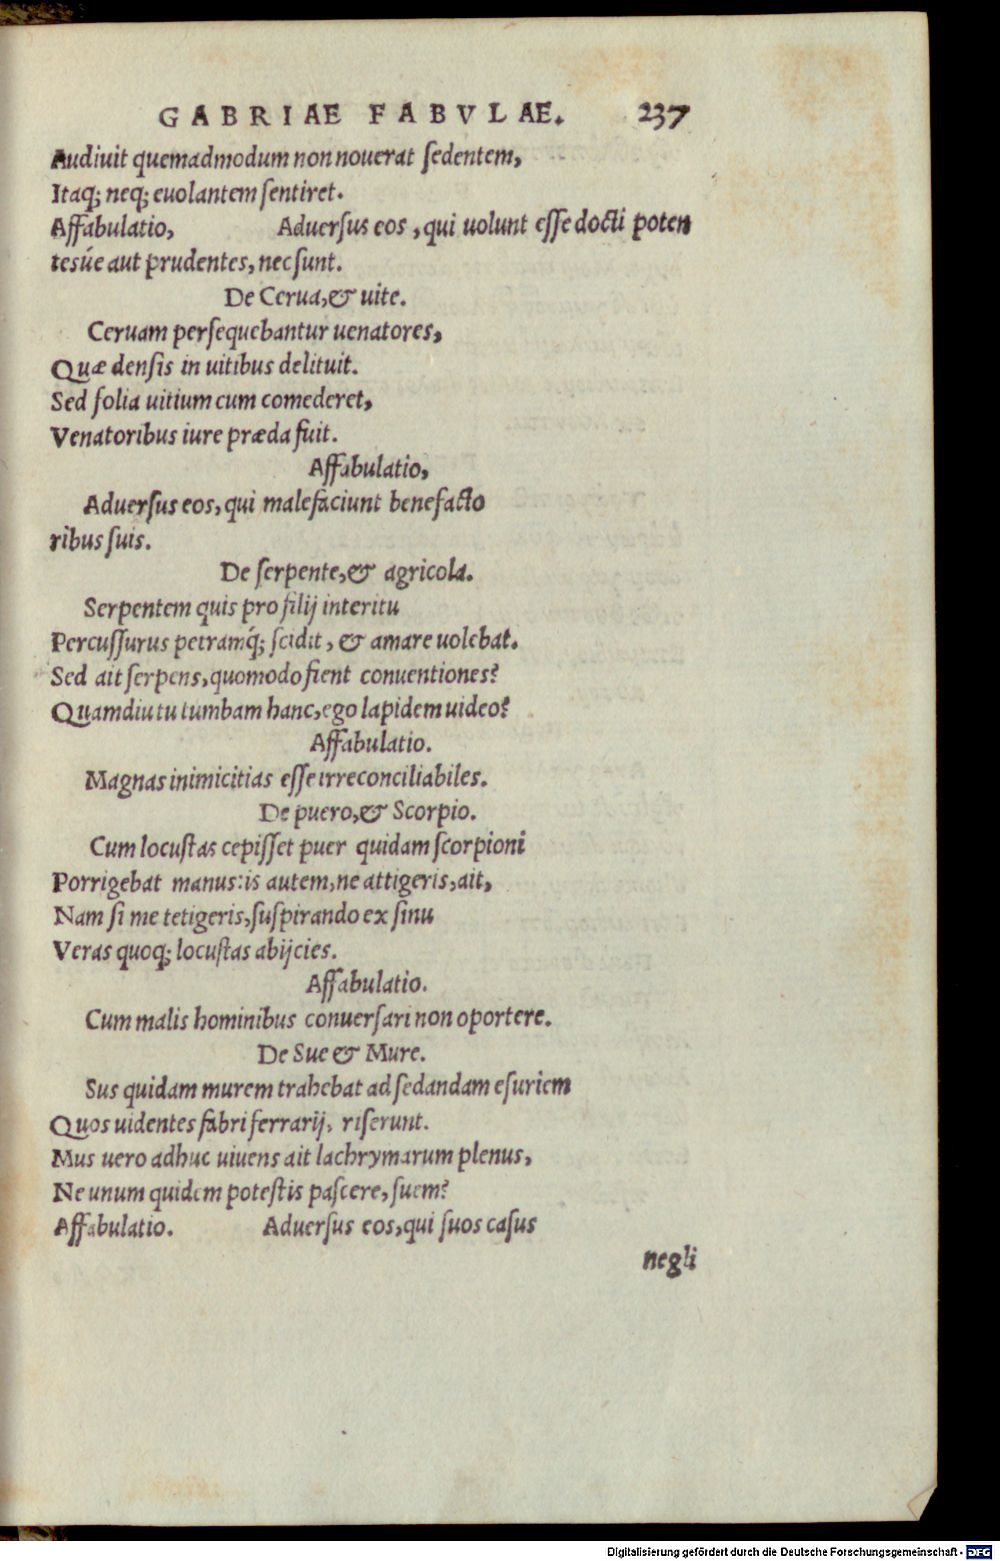 GABRIAE FABVLAE. 237
Audiuit quemadmodum non nouerat sedentem,
Itaq; neq; euolantem sentiret.
Affabulatio, Aduersus eos, qui uolunt esse docti poten
tesúe aut prudentes, nec sunt.
De Cerua, & uite.
Ceruam persequebantur uenatores,
Quæ densis in uitibus delituit.
Sed folia uitium cum comederet,
Venatoribus iure præda fuit.
Affabulatio,
Aduersus eos, qui malefaciunt benefacto
ribus suis.
De serpente, & agricola.
Serpentem quis pro filij interitu
Percussurus petramq́; scidit, & amare uolebat.
Sed ait serpens, quomodo fient conuentiones?
Quamdiu tu tumbam hanc, ego lapidem uideo?
Affabulatio.
Magnas inimicitias esse irreconciliabiles.
De puero, & Scorpio.
Cum locustas cepisset puer quidam scorpioni
Porrigebat manus: is autem, ne attigeris, ait,
Nam si me tetigeris, suspirando ex sinu
Veras quoq; locustas abijcies.
Affabulatio.
Cum malis hominibus conuersari non oportere.
De Sue & Mure.
Sus quidam murem trahebat ad sedandam esuriem
Quos uidentes fabri ferrarij, riserunt.
Mus uero adhuc uiuens ait lachrymarum plenus,
Ne unum quidem potestis pascere, suem?
Affabulatio. Aduersus eos, qui suos casus
negli
Digitalisierung gefördert durch die Deutsche Forschungsgemeinschaft - DFG